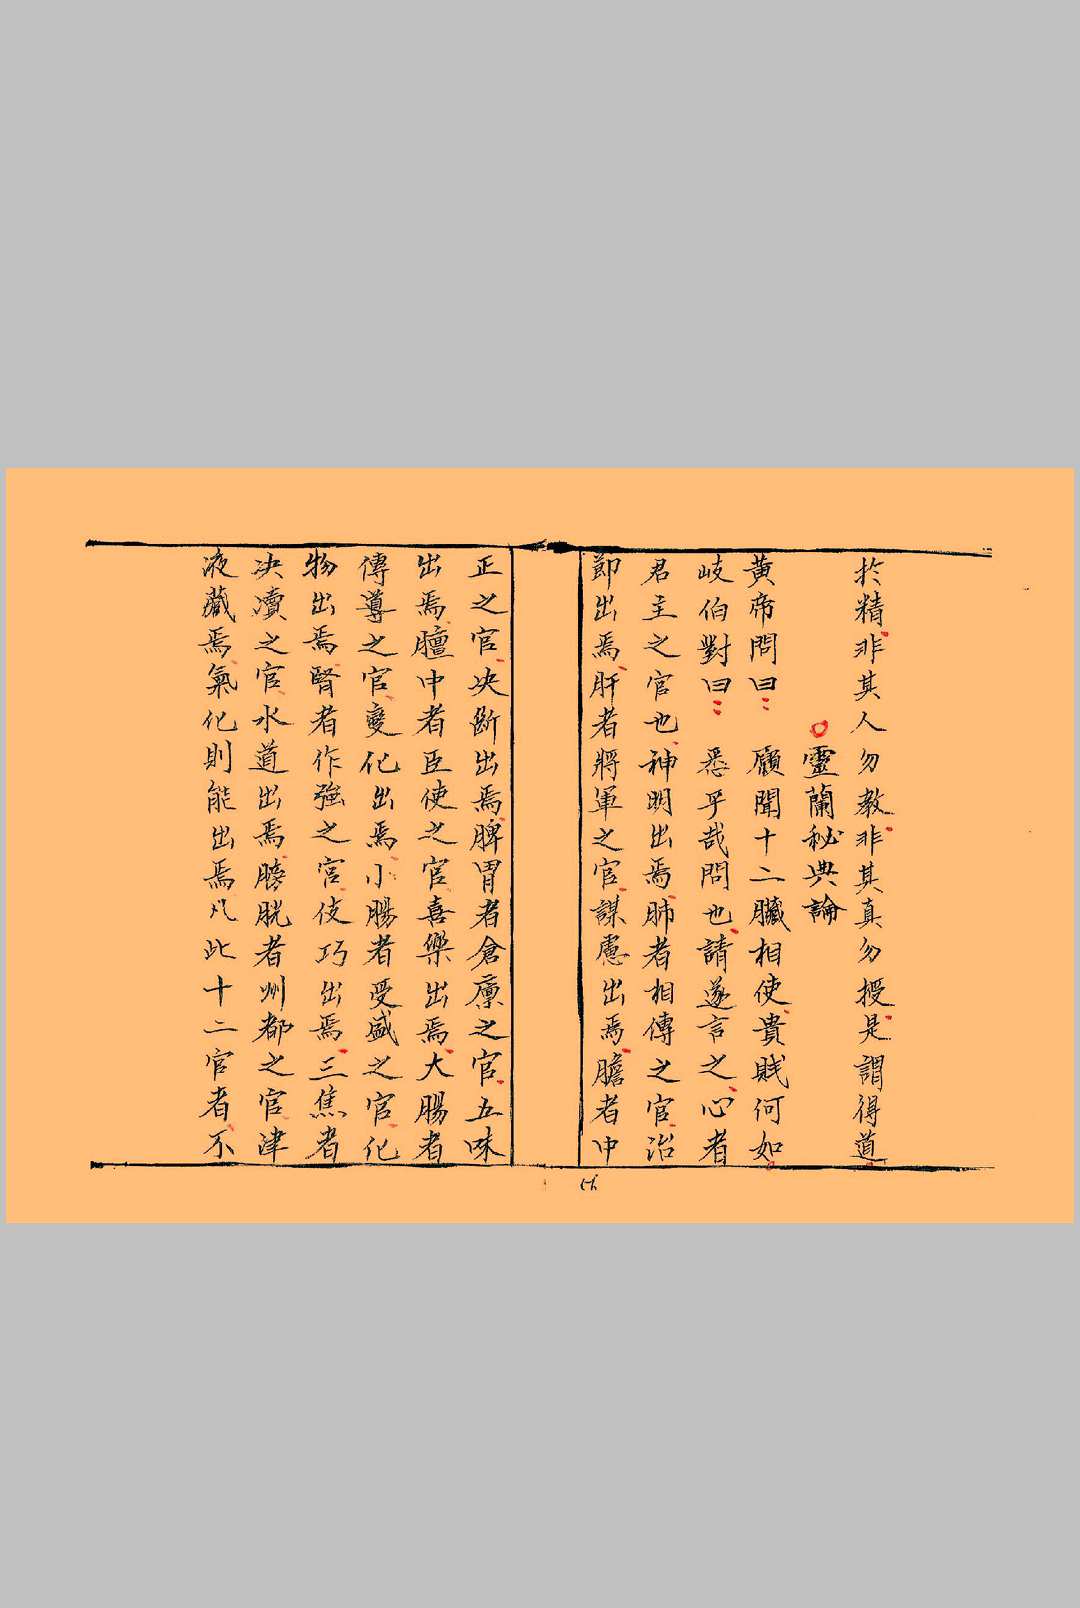 扵精非其人勿教非其真勿授是謂得道
靈蘭秘典論
黃帝問曰 願聞十二臟相使貴賤何如
岐伯對曰 悉乎哉問也請遂言之心者
君主之官也神明出焉肺者相傳之官治
節出焉肝者將軍之官謀慮出焉膽者中
正之官决斷出焉脾胃者倉廪之官五味
出焉膻中者臣使之官喜樂出焉大腸者
傳導之官變化出焉小腸者受盛之官化
物出焉腎者作強之官伎巧出焉三焦者
决凟之官水道出焉膀胱者州都之官津
液藏焉氣化則能出焉凡此十二官者不